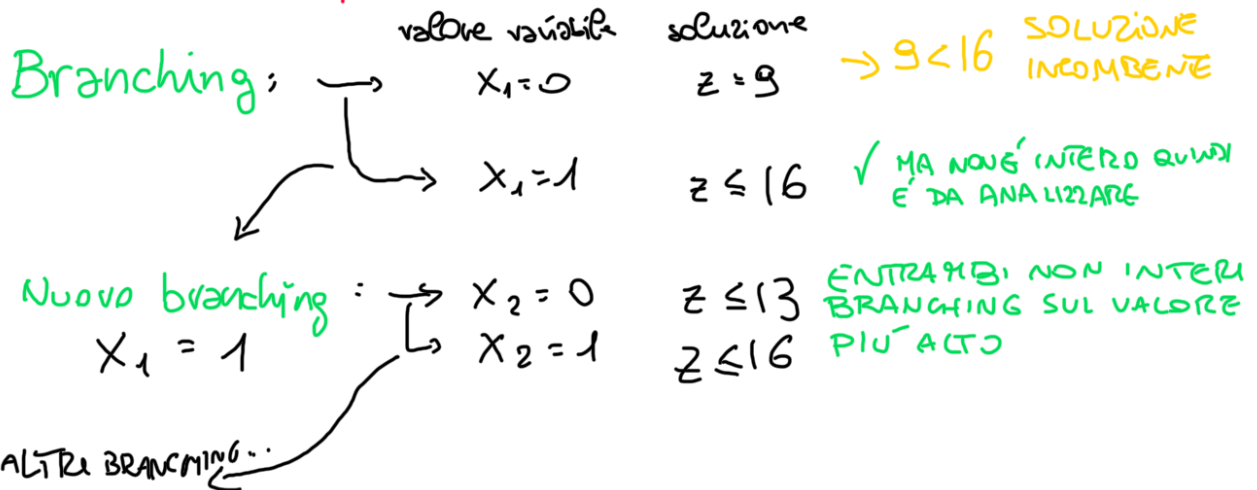 valore variabile soluzione
Branching: → X₁=0 z=9 → 9<16 SOLUZIONE INCOMBENTE
X₁=1 z≤16 √ MA NON É INTERO QUINDI
É DA ANALIZZARE
Nuovo branching: → X₂=0 z≤13 ENTRAMBI NON INTERI
X₁ = 1 X₂=1 z≤16 BRANCHING SUL VALORE
PIÚ ALTO
ALTRI BRANCHING...